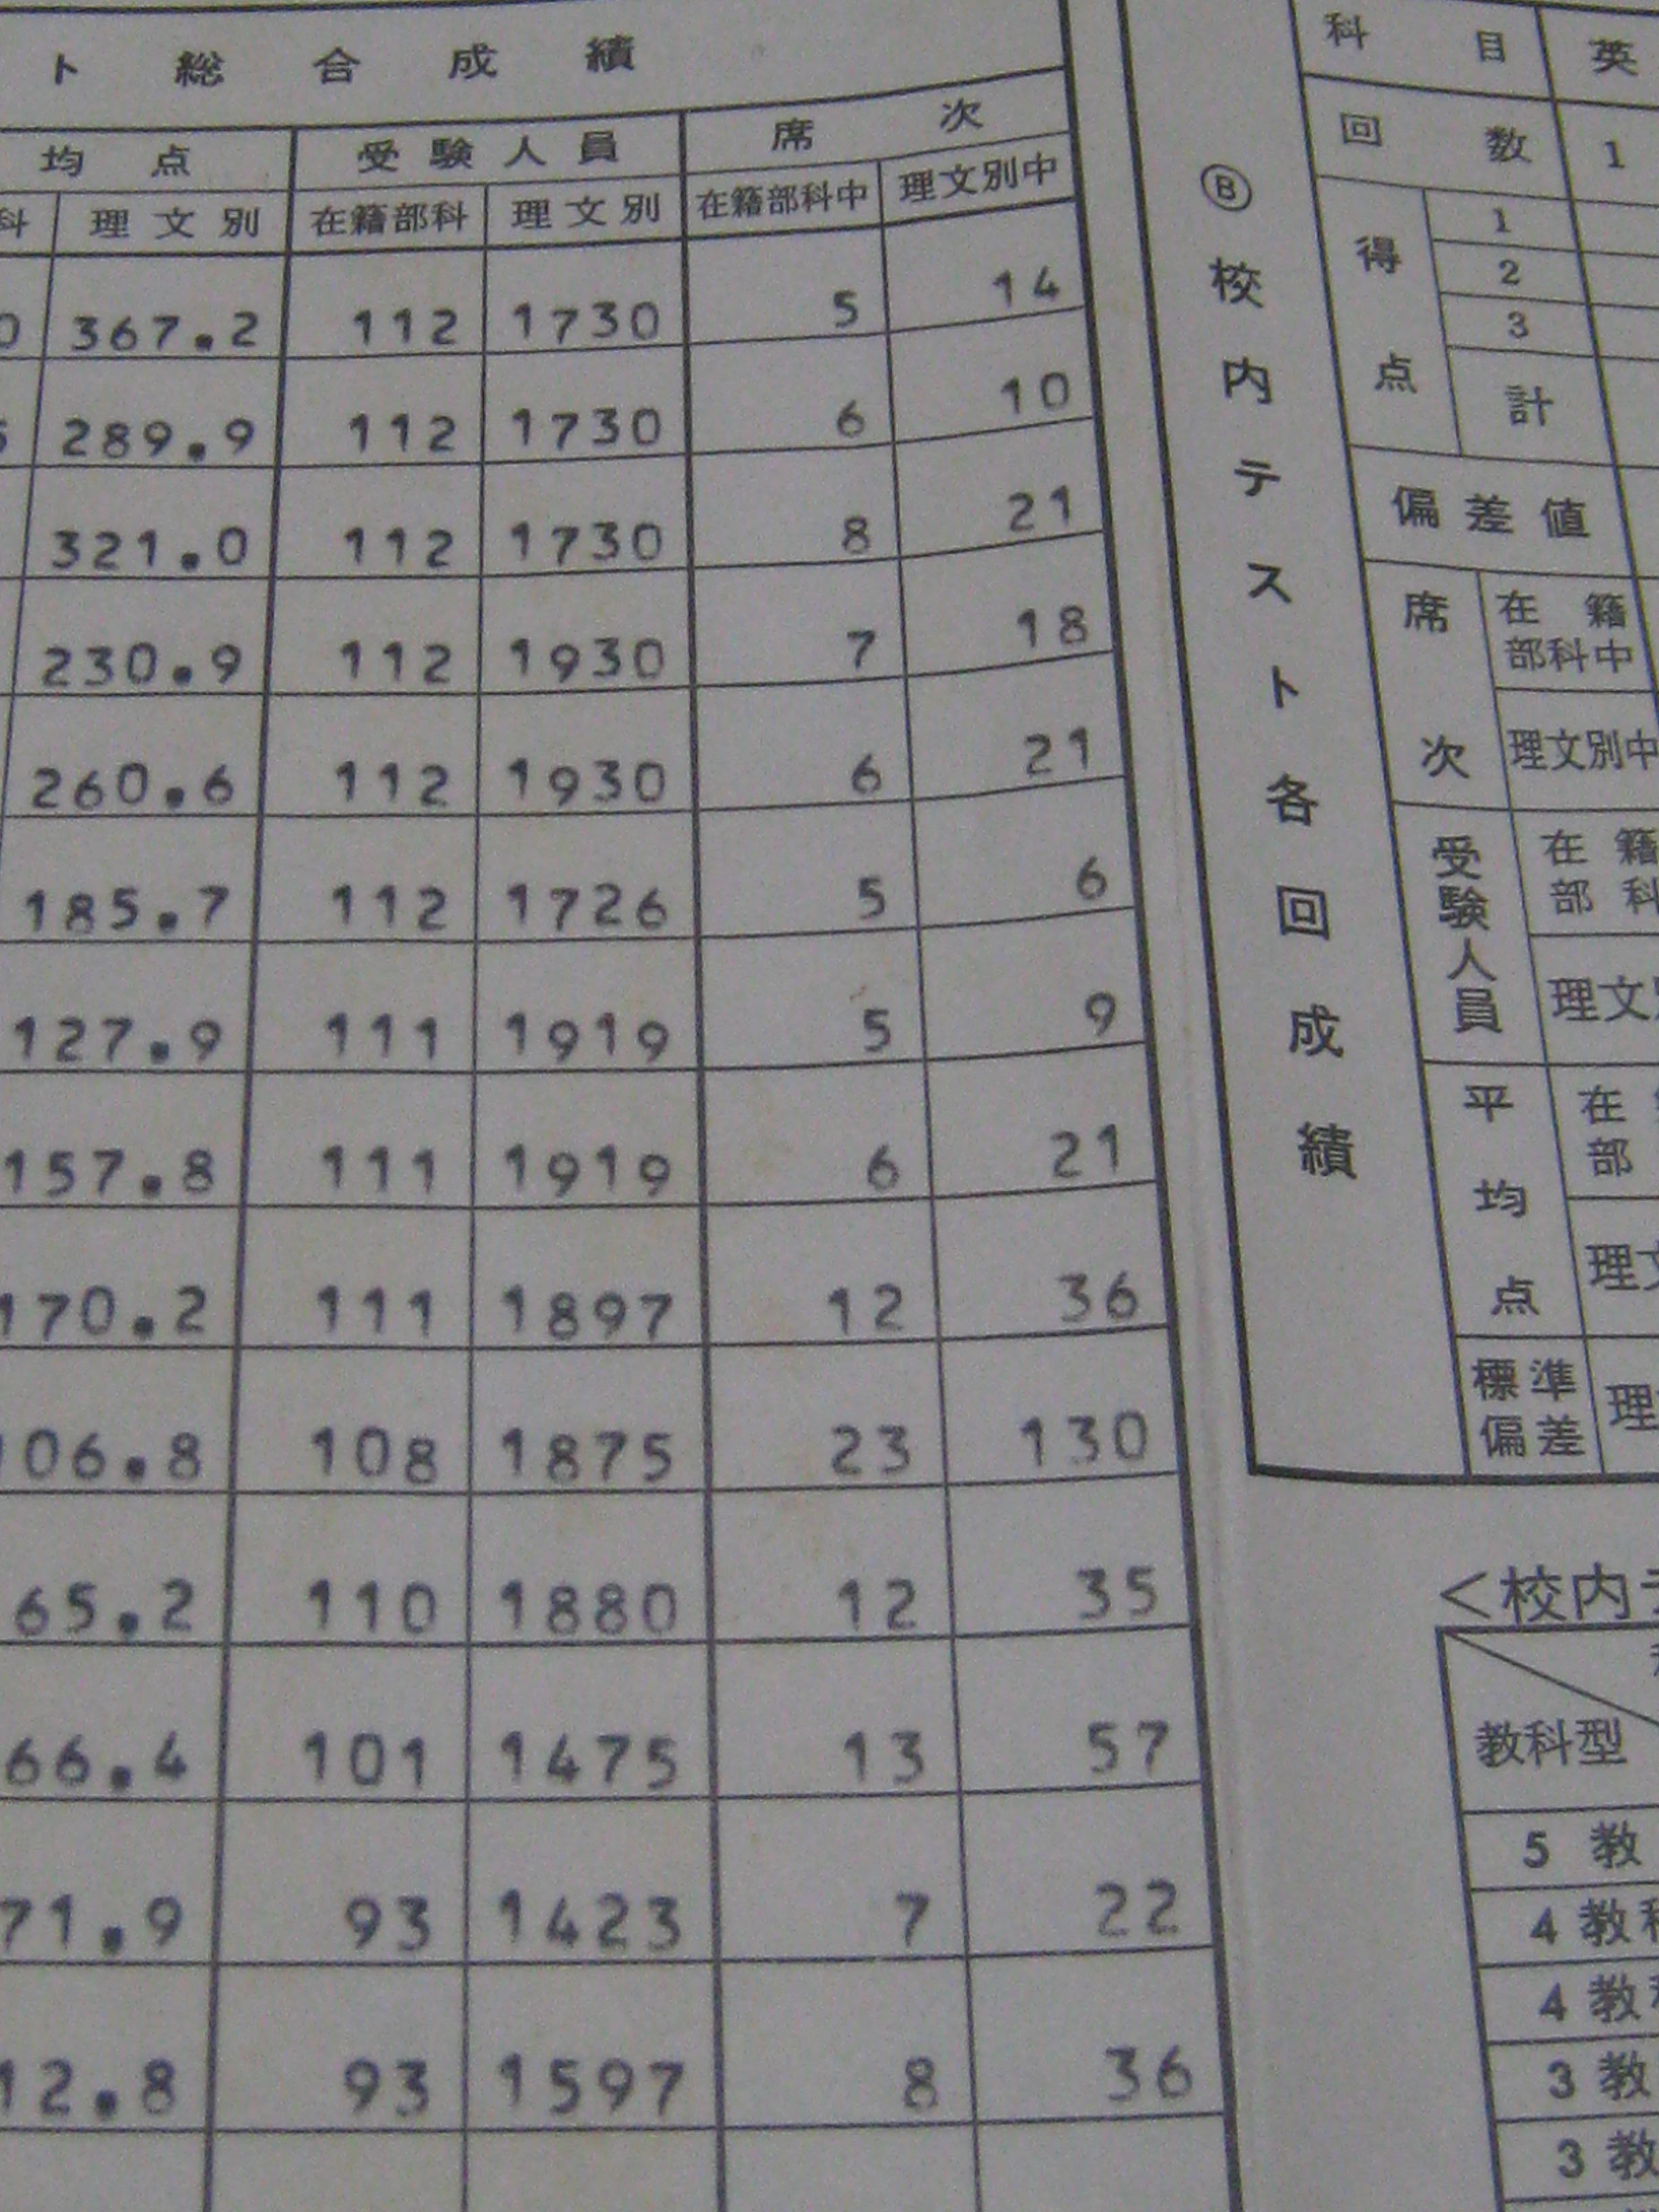 ト 総 合 成 績
均 点 受 験 人 員 席 次
科 理 文 別 在籍部科 理 文 別 在籍部科中 理文別中
0 367.2 112 1730 5 14
289.9 112 1730 6 10
321.0 112 1730 8 21
230.9 112 1930 7 18
260.6 112 1930 6 21
185.7 112 1726 5 6
127.9 111 1919 5 9
157.8 111 1919 6 21
170.2 111 1897 12 36
06.8 108 1875 23 130
65.2 110 1880 12 35
66.4 101 1475 13 57
71.9 93 1423 7 22
12.8 93 1597 8 36
Ⓑ校内テスト各回成績
科 目 英
回 数 1
得 点
1
2
3
計
偏 差 値
席 次
在 籍
部科中
理文別中
受験人員
在 籍
部 科
理文別
平 均 点
在
部
理文
標 準
偏 差
理
<校内テ
教科型
5 教
4 教科
4 教科
3 教
3 教